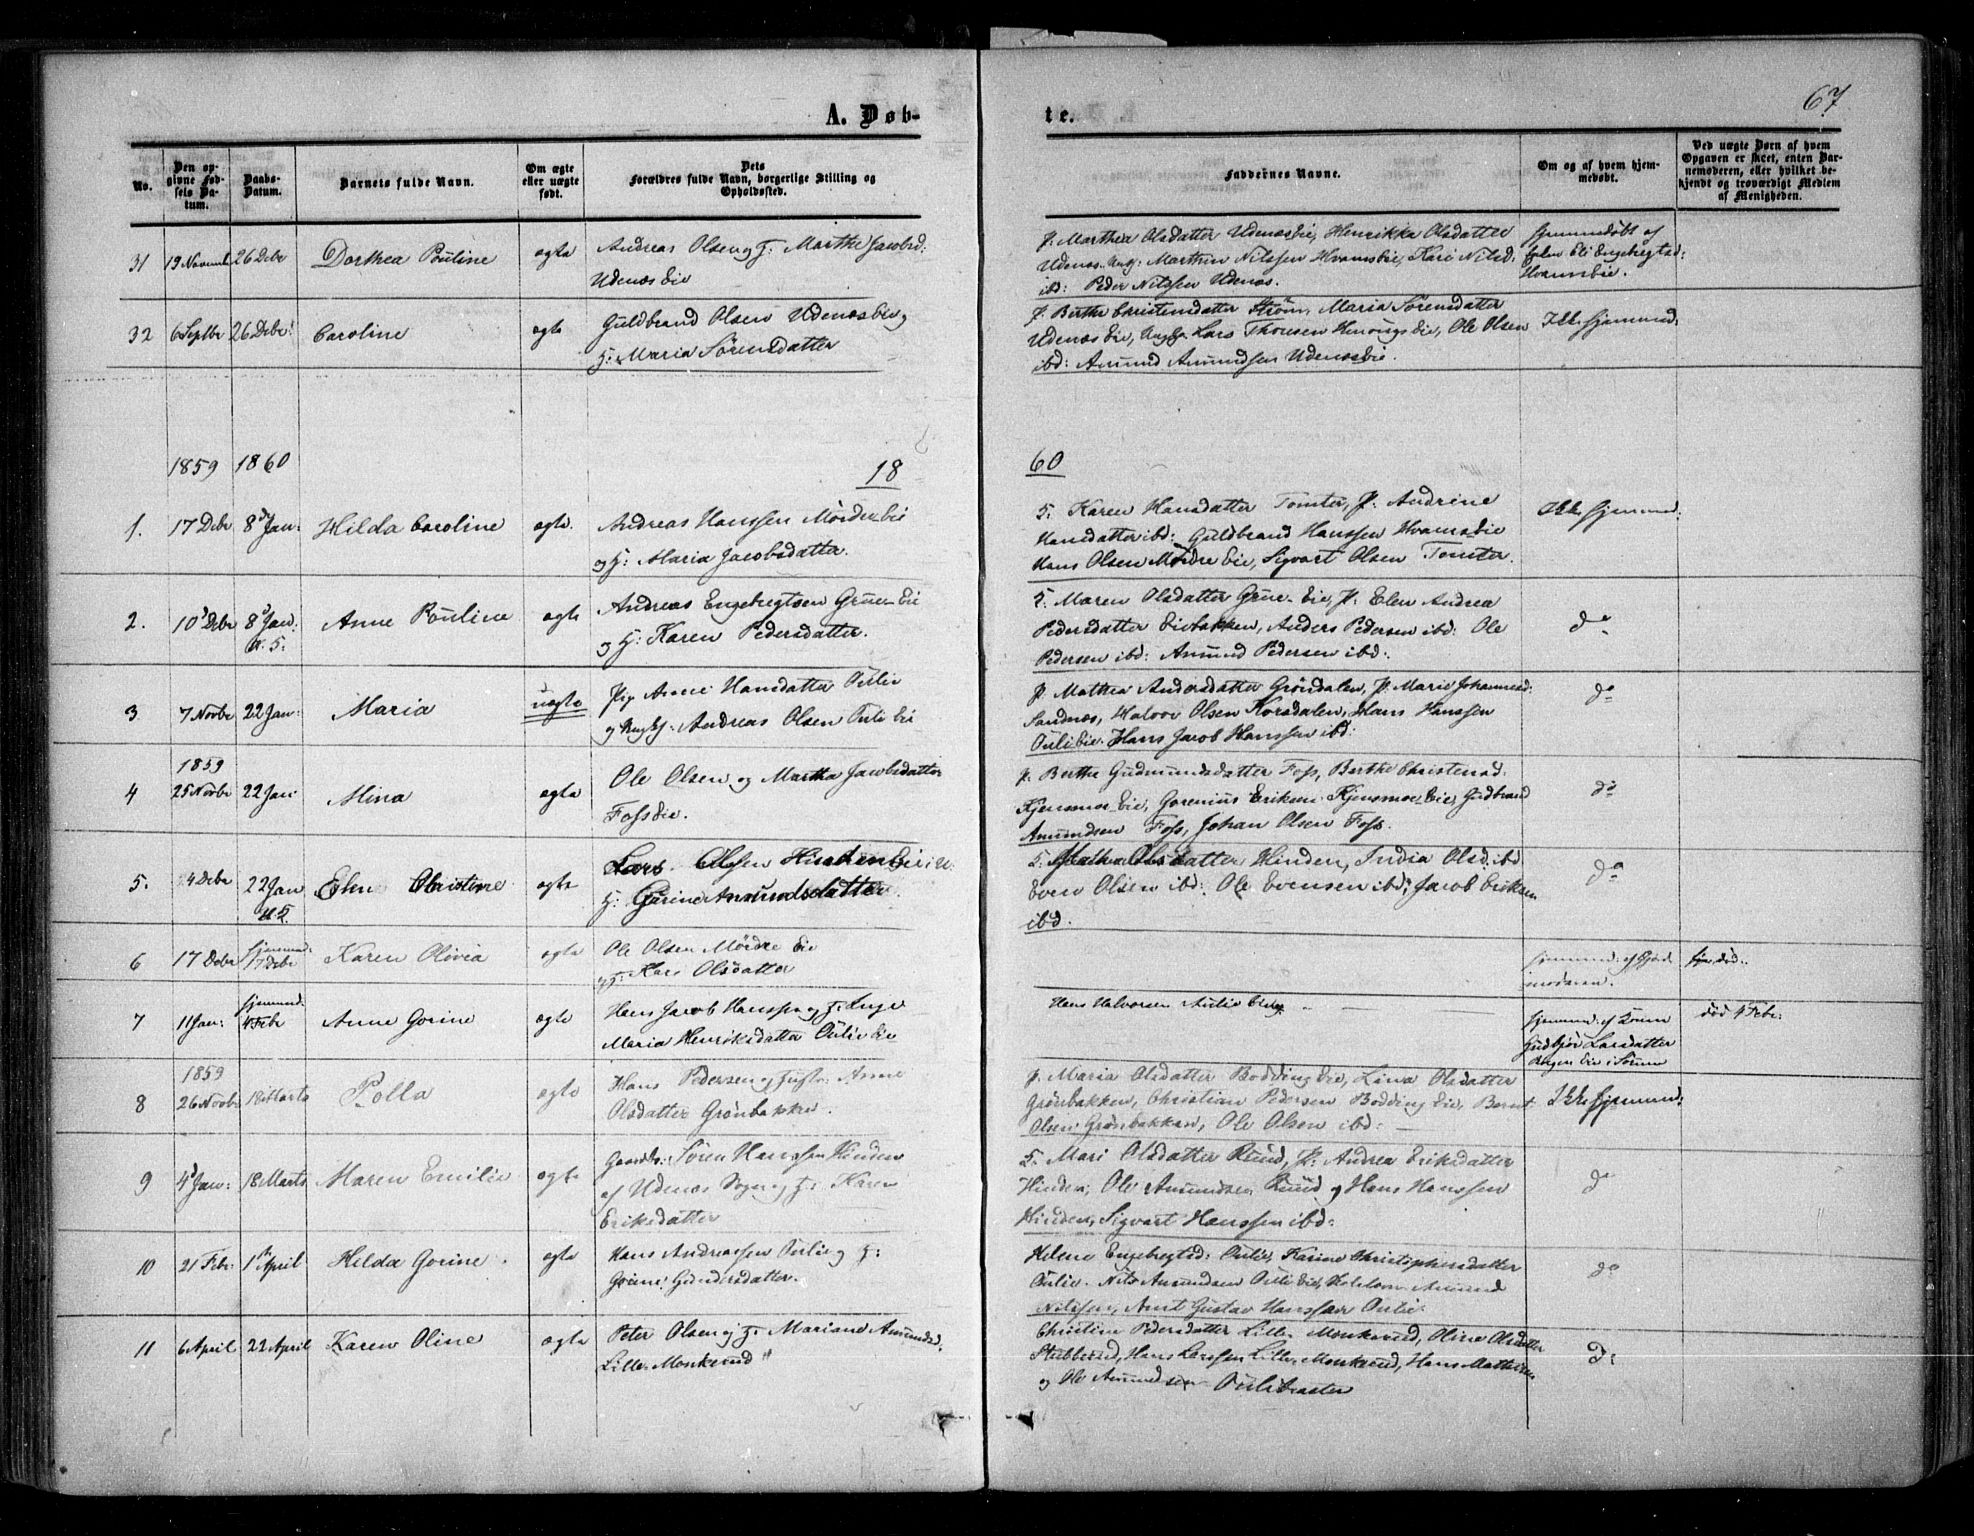 67
A. Døb-
te.
No.
Den op-
givne Fød-
sels Da-
tum.
Daabs-
Datum.
Barnets fulde Navn.
Om ægte
eller uægte
født.
Dets
Forældres fulde Navn, borgerlige Stilling og
Opholdssted.
Faddernes Navne.
Om og af hvem hjem-
medøbt.
Ved uægte Børn af hvem
Opgaven er skeet, enten Bar-
nemoderen, eller hvilket be-
kjendt og troværdigt Medlem
af Menigheden.
31 19 Novemb 26 Debr Dorthea Pouline ægte
Andreas Olsen og H: Marthe Jacobsd:
Udenæs Eie
P. Marthea Olsdatter Udenæseie, Henrikka Olsdatter
Udenæs. Ungk. Marthin Nilssen Hvamseie, Kari Nilsd:
ibd: Peder Nilssen Udenæs.
hjemmedøbt af
Eli Engebregtsd:
Hvamseie.
32 6 Septbr 26 Debr: Caroline ægte
Guldbrand Olsen Udenæseie og
H: Maria Sörensdatter
P. Berthe Christensdatter Ström, Maria Sörensdatter
Udenæs Eie, Ungk. Lars Thoresen Henungs Eie, Ole Olsen
ibd: Amund Amundsen Udenæseie.
Ikke hjemmed:
1859 1860
18
60
1. 17 Debr 8de Jan: Hilda Caroline ægte.
Andreas Hanssen Mördre Eie
og H: Maria Jacobsdatter.
K. Karen Hansdatter Tomter, P. Andrine
Hansdatter ibd: Guldbrand Hanssen Hvamseie
Hans Olsen Mördre Eie, Sigvart Olsen Tomter.
Ikke hjemmed:
2. 10de Debr 8de Jan: Anne Pouline ægte
N. 5:
Andreas Engebregtsen Grue Eie
og H: Karen Pedersdatter.
K. Maren Olsdatter Grue Eie, P. Elen Andrea
Pedersdatter Eiebakken, Anders Pedersen ibd: Ole
Pedersen ibd: Amund Pedersen ibd:
do
3 7 Novbr 22 Jan: Maria uægte
Pig. Anne Hansdatter Oulie
og Ungk. Andreas Olsen Ouli Eie
P. Mathea Andersdatter Gröndalen, P. Marie Johannesd:
Sandnæs, Halvor Olsen Korsdalen, Hans Hanssen
Oulieie. Hans Jacob Hanssen ibd:
do
1859
4 25 Novbr 22 Jan: Mina ægte
Ole Olsen og Martha Jacobsdatter
Foss Eie.
P. Berthe Gudmundsdatter Foss, Berthe Christensd.
Kjensmoe Eie, Gorenius Eriksen Kjensmoe Eie, Gudbrand
Amundsen Foss, Johan Olsen Foss.
do
5. 24 Debr 22 Jan Christine ægte
N. 5
Lars Olssen Hinden Eie i U.
H: Gorine Amundsdatter
K. Mathea Olsdatter Hinden, India Olsd. ibd.
Even Olsen ibd: Ole Evensen ibd: Jacob Eriksen
ibd.
do
6 17 Debr hjemmed: 17 Debr Karen Olivia ægte
Ole Olsen Mördre Eie
og H: Kari Olsdatter
hjemmed: af Gjord
moderen.
død.
7 11 Jan: hjemmed: 4 Febr Anne Gorine ægte
Hans Jacob Hanssen og H: Inge
Maria Henriksdatter Oulie Eie
Hans Halvorsen Aulie Eie
hjemmed: af Konen
Gudbjør Larsdatter
Eie i Sörum
død 4 Febr:
1859
8 26 Novbr 18 Marts Polla ægte
Hans Pedersen og Hustr: Anne
Olsdatter Grönbakken.
P. Maria Olsdatter Bodding Eie, Lina Olsdatter
Grönbakken, Christian Pedersen Bodding Eie, Bernt
Olsen Grönbakken, Ole Olsen ibd:
Ikke hjemmed:
9 4de Jan: 18 Marts Maren Emilie ægte
Gaardbr: Sören Hanssen Hinden
af Udenæs Sogn og H: Karen
Eriksdatter
K. Mari Olsdatter Ruud, P. Andrea Eriksdatter
Hinden, Ole Amundsen Ruud og Hans Hanssen
Hinden, Sigvart Hanssen ibd:
do
10 21 Febr: 1ste April Hilda Gorine ægte
Hans Andreassen Oulie og H:
Gorine Gundersdatter.
Helene Engebregtsd: Oulie, Karine Christophersdatter
Oulie. Nils Amundsen Ouli Eie, Amund
Nilssen, Arnt Gustav Hanssen Oulie.
do
11 6 April 22 April Karen Oline ægte
Peter Olsen og H: Mariane Amundsd:
Lille Monkerud
Christine Pedersdatter Lille Monkerud, Oline Olsdatter
Stubberud, Hans Larssen Lille Monkerud, Hans Mathisen
og Ole Amundsen Oulibraater
Do: